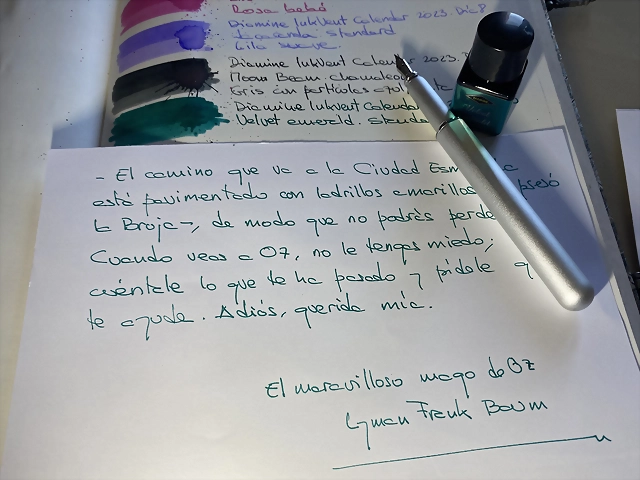 Rosa bebé
Diamine InkVent Calendar 2023. Día 8
standard
Lila suave.
Diamine InkVent Calendar 2023.
Moon Beam. chameleon
Gris con partículas
Diamine InkVent Calendar
Velvet emerald. Standa
- El camino que va a la Ciudad Esm
está pavimentado con ladrillos amarillos
la Bruja-, de modo que no podrás perde
Cuando veas a Oz, no le tengas miedo;
cuéntale lo que te ha pasado y pídele q
te ayude. Adiós, querida mía.
El maravilloso mago de Oz
Lyman Frank Baum